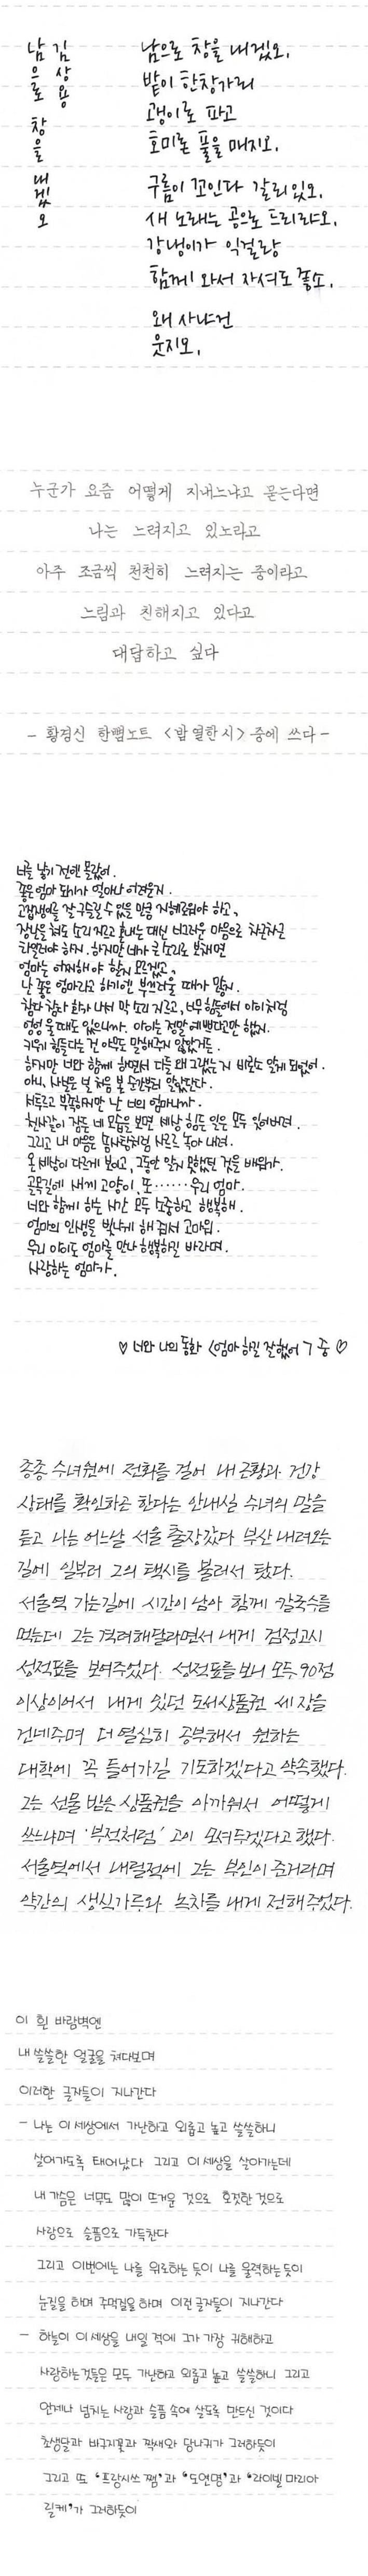 김상용
남으로 창을 내겠오
남으로 창을 내겠오.
밭이 한창가리
괭이로 파고
호미론 풀을 매지오.
구름이 꼬인다 갈리 있오.
새 노래는 공으로 드리랴오.
강냉이가 익걸랑
함께 와서 자셔도 좋소.
왜 사냐건
웃지오.
누군가 요즘 어떻게 지내느냐고 묻는다면
나는 느려지고 있노라고
아주 조금씩 천천히 느려지는 중이라고
느림과 친해지고 있다고
대답하고 싶다
- 황경신 한뼘노트 <밤 열한 시> 중에 쓰다 -
너를 낳기 전엔 몰랐어.
좋은 엄마 되기가 얼마나 어려운지.
고집쟁이를 잘 구슬릴 수 있을 만큼 지혜로워야 하고,
장난을 쳐도 소리 지르고 혼내는 대신 너그러운 마음으로 차근차근
타일러야 하지. 하지만 네가 큰 소리로 보채면
엄마는 어찌해야 할지 모르겠고,
난 좋은 엄마라고 하기엔 부끄러울 때가 많지.
참다 참다 화가 나서 막 소리 지르고, 너무 힘들어서 아이처럼
엉엉 울 때도 있으니까. 아이는 정말 예쁘다고만 했지.
키우기 힘들다는 건 아무도 말해주지 않았거든.
하지만 너와 함께 하면서 다들 왜 그랬는지 비로소 알게 되었어.
아니, 사실은 널 처음 본 순간부터 알았단다.
서투르고 부족하지만 난 너의 엄마니까.
천사같이 잠든 네 모습을 보면 세상 힘든 일은 모두 잊어버려.
그리고 내 마음은 솜사탕처럼 사르르 녹아 내려.
온 세상이 다르게 보이고, 그동안 알지 못했던 것을 배워가.
골목길에 새끼 고양이, 또 ······ 우리 엄마.
너와 함께 하는 시간 모두 소중하고 행복해.
엄마의 인생을 빛나게 해 줘서 고마워.
우리 아이도 엄마를 만나 행복하길 바라며.
사랑하는 엄마가.
♡ 너와 나의 동화 <엄마 하길 잘했어> 중 ♡
종종 수녀원에 전화를 걸어 내 근황과 건강
상태를 확인하곤 한다는 안내실 수녀의 말을
듣고 나는 어느날 서울 출장갔다 부산 내려오는
길에 일부러 그의 택시를 불러서 탔다.
서울역 가는길에 시간이 남아 함께 칼국수를
먹는데 그는 격려해달라면서 내게 검정고시
성적표를 보여주었다. 성적표를 보니 모두 90점
이상이어서 내게 있던 도서상품권 세 장을
건네주며 더 열심히 공부해서 원하는
대학에 꼭 들어가길 기도하겠다고 약속했다.
그는 선물 받은 상품권을 아까워서 어떻게
쓰느냐며 '부적처럼' 고이 모셔두겠다고 했다.
서울역에서 내릴적에 그는 부인이 준거라며
약간의 생식가루와 녹차를 내게 전해주었다.
이 흰 바람벽엔
내 쓸쓸한 얼굴을 쳐다보며
이러한 글자들이 지나간다
- 나는 이 세상에서 가난하고 외롭고 높고 쓸쓸하니
살어가도록 태어났다 그리고 이 세상을 살아가는데
내 가슴은 너무도 많이 뜨거운 것으로 호젓한 것으로
사랑으로 슬픔으로 가득찬다
그리고 이번에는 나를 위로하는 듯이 나를 울력하는듯이
눈질을 하며 주먹질을 하며 이런 글자들이 지나간다
- 하늘이 이 세상을 내일 적에 그가 가장 귀해하고
사랑하는것들은 모두 가난하고 외롭고 높고 쓸쓸하니 그리고
언제나 넘치는 사랑과 슬픔 속에 살도록 만드신 것이다
초생달과 바구지꽃과 짝새와 당나귀가 그러하듯이
그리고 또 '프랑시쓰 쨈'과 '도연명'과 '라이넬 마리아
릴케'가 그러하듯이